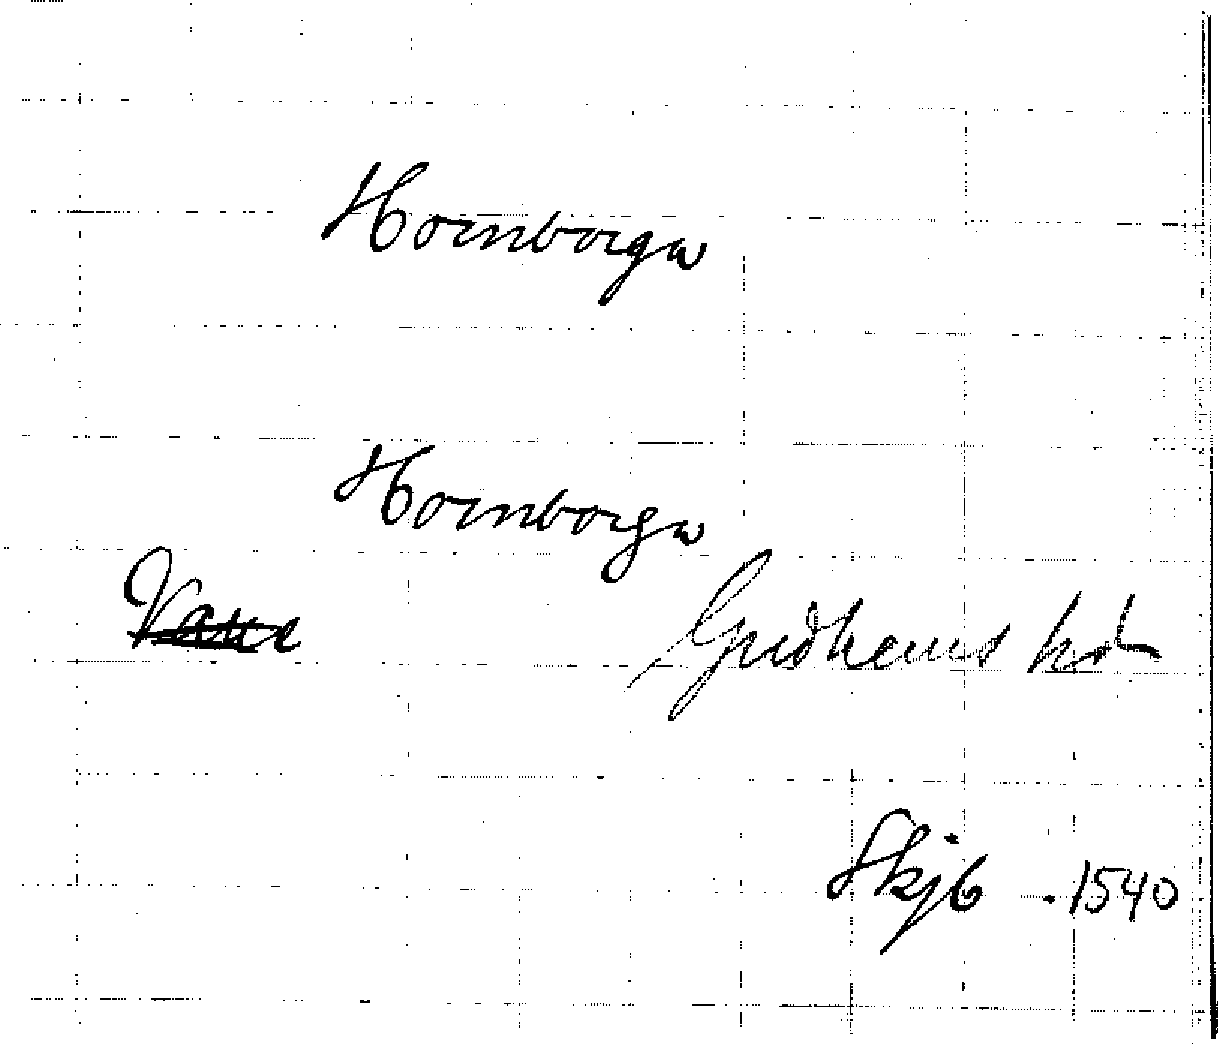 Hornborga
Hornborga
Gudhems hd
Skjb 1540